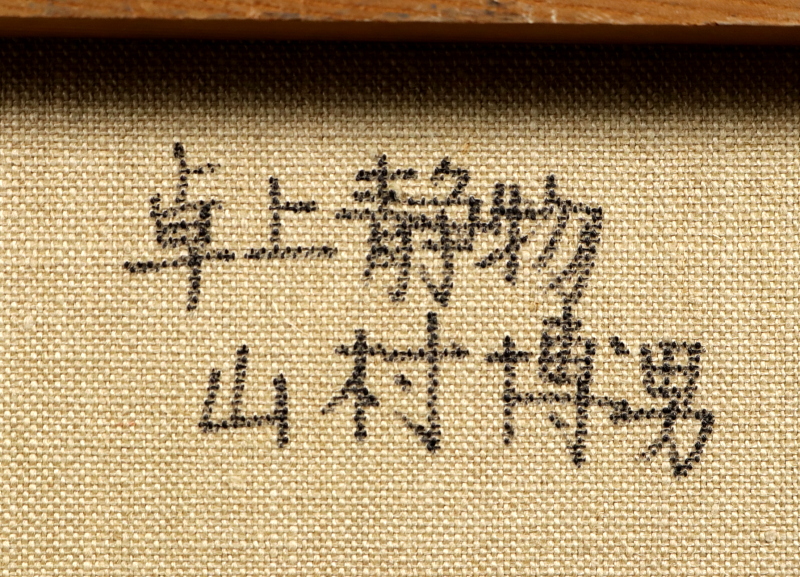 卓上静物
山村博男